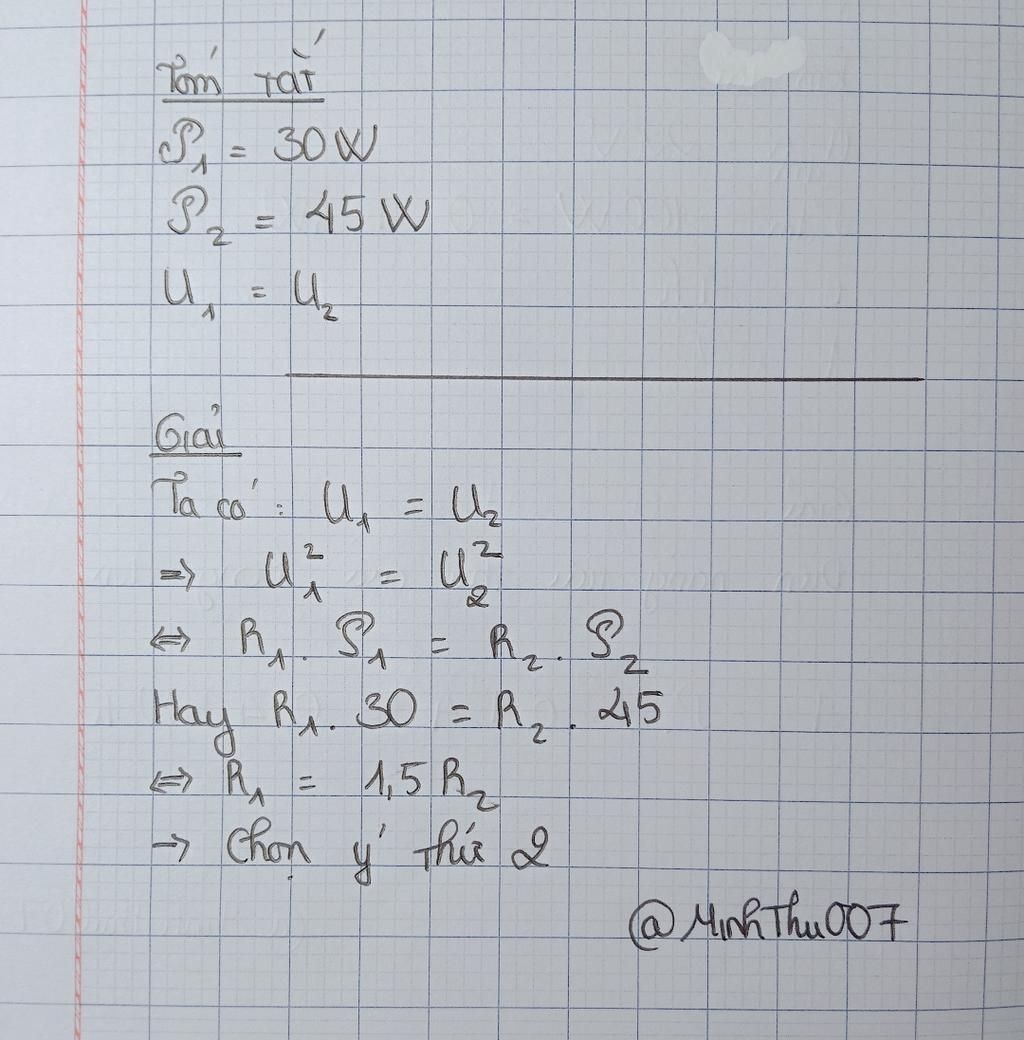 Tóm tắt
P₁ = 30W
P₂ = 45W
U₁ = U₂
Giải
Ta có: U₁ = U₂
⇒ U₁² = U₂²
⇔ R₁. P₁ = R₂. P₂
Hay R₁. 30 = R₂. 45
⇔ R₁ = 1,5 R₂
→ Chọn ý thứ 2
@MinhThu007